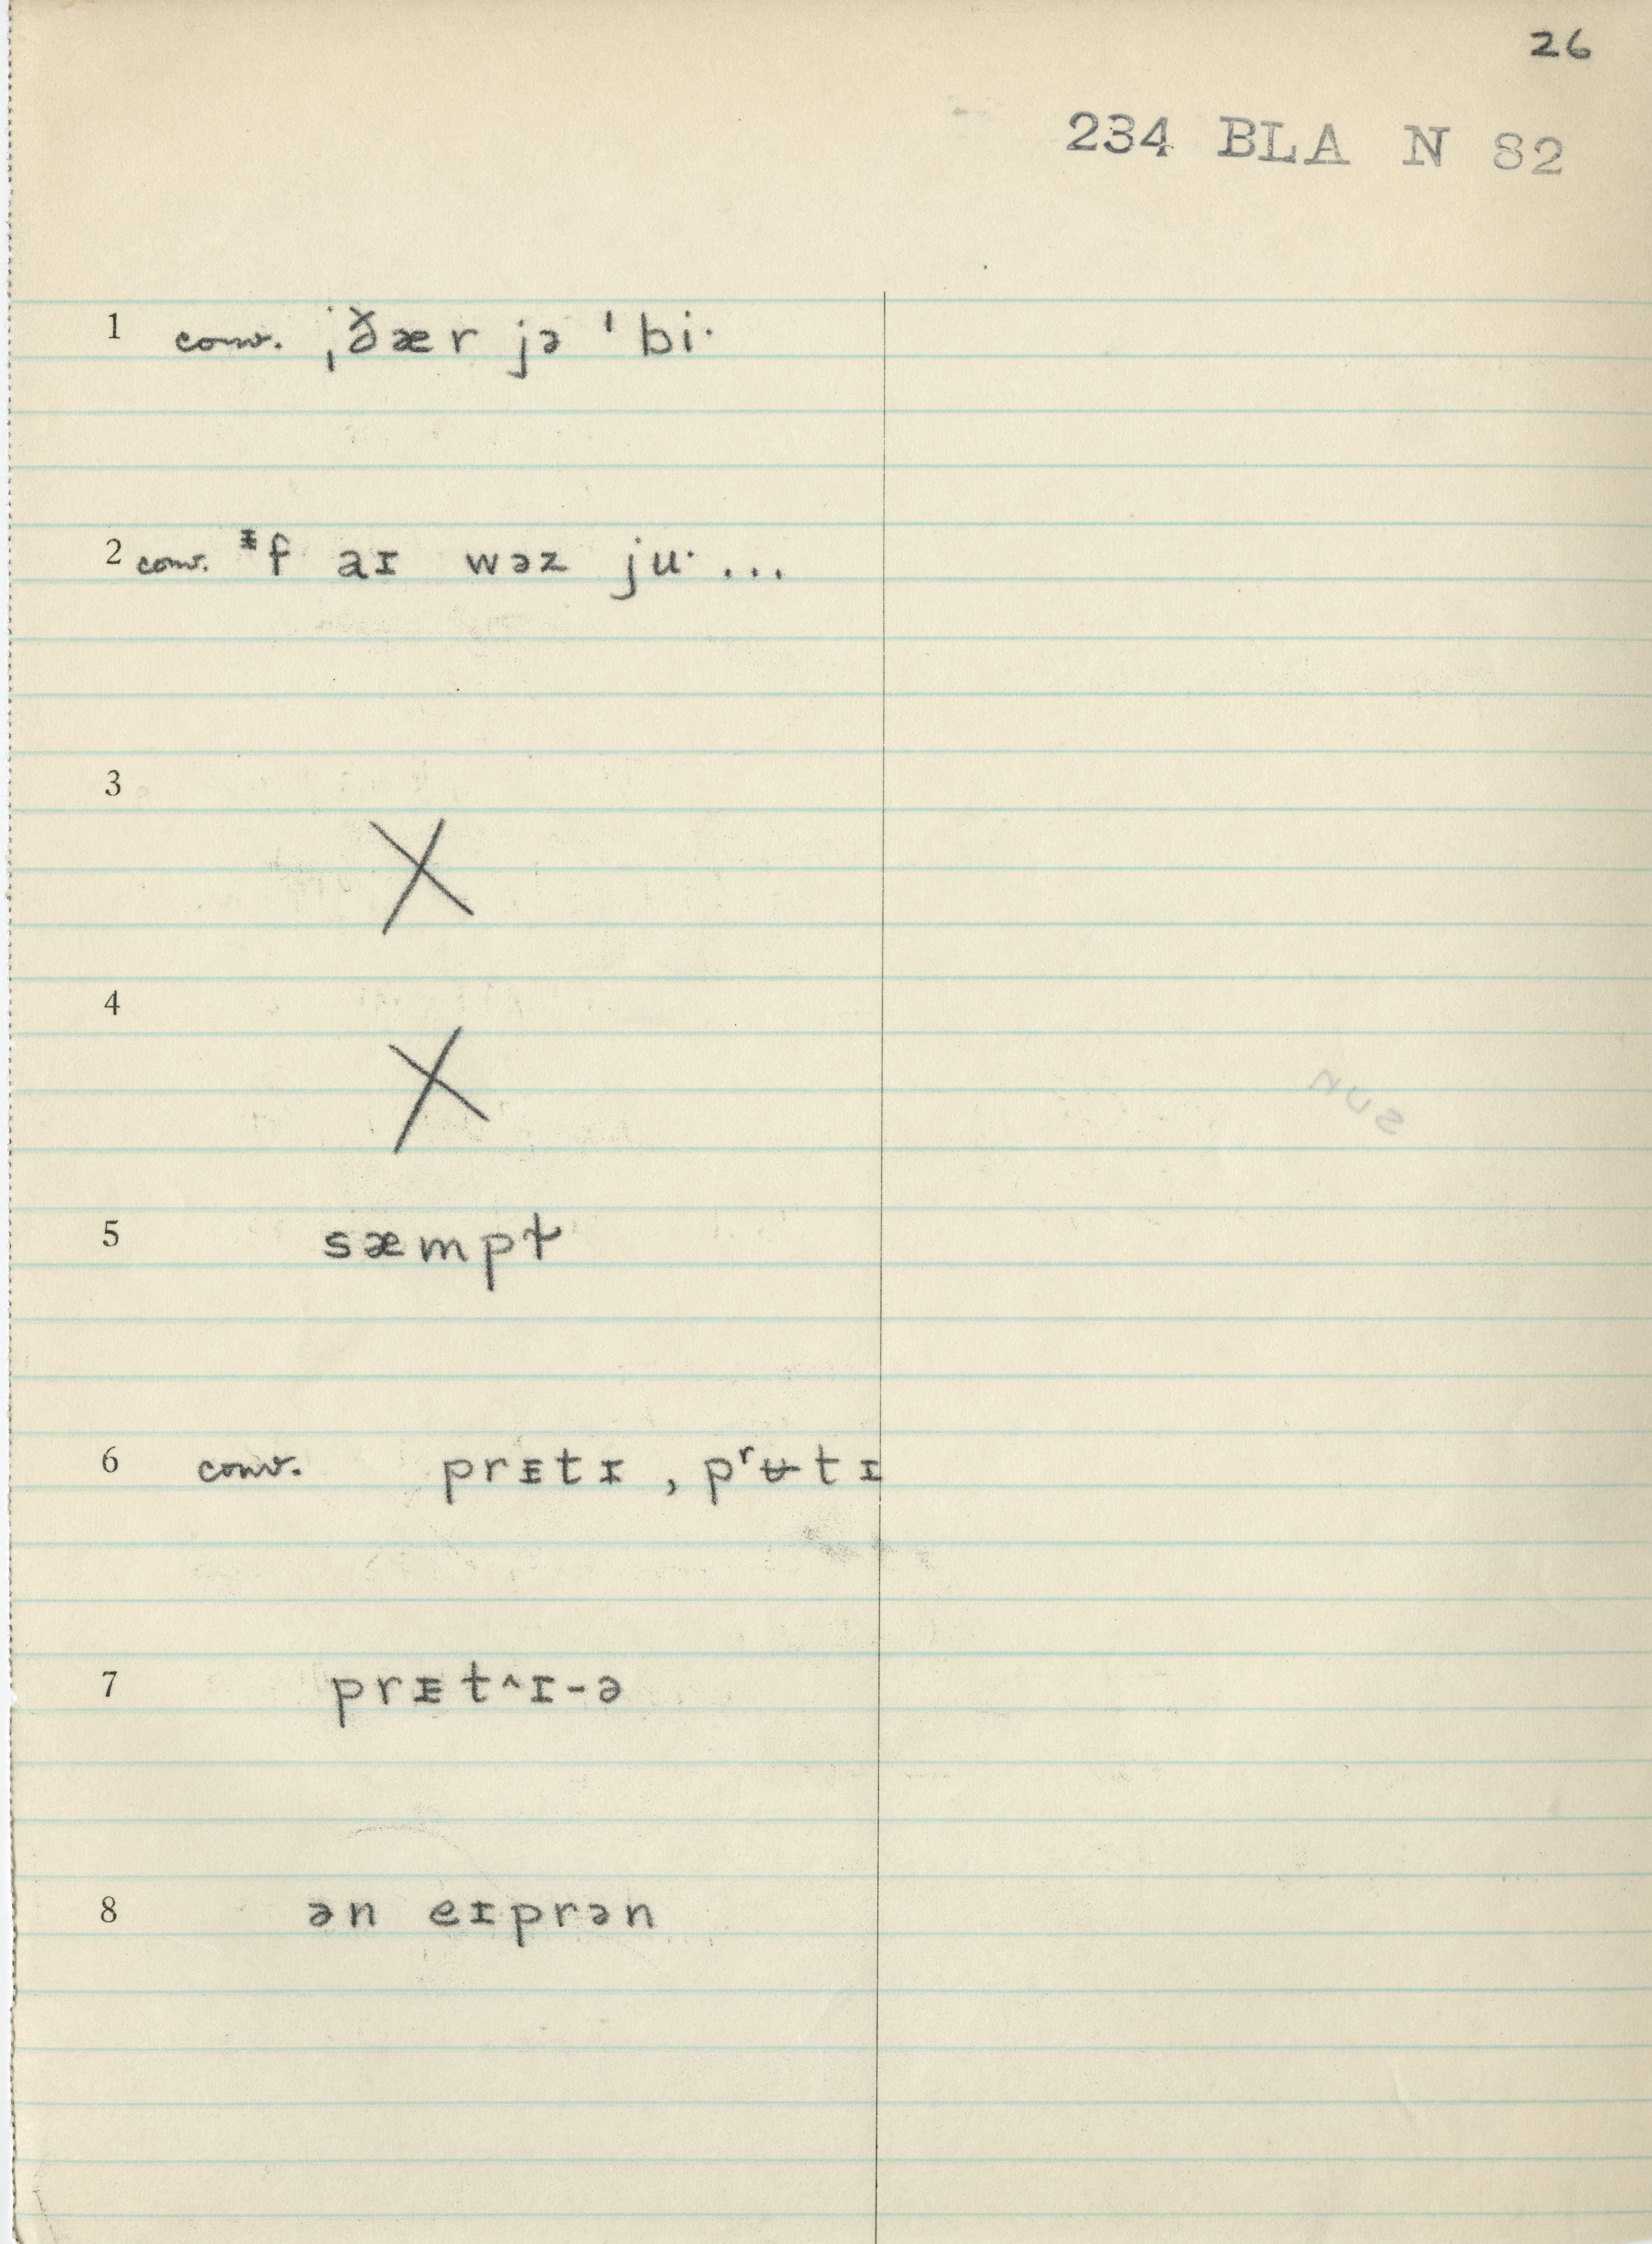 26
234 BLA N 82
1 conv. ˌðær jə ˈbi·
2 conv. ᵻf aɪ wəz ju· ...
3 X
4 X
5 sæmpt
6 conv. prᵻtɪ, pʳʉtɪ
7 prᵻt^ɪ-ə
8 ən eɪprən